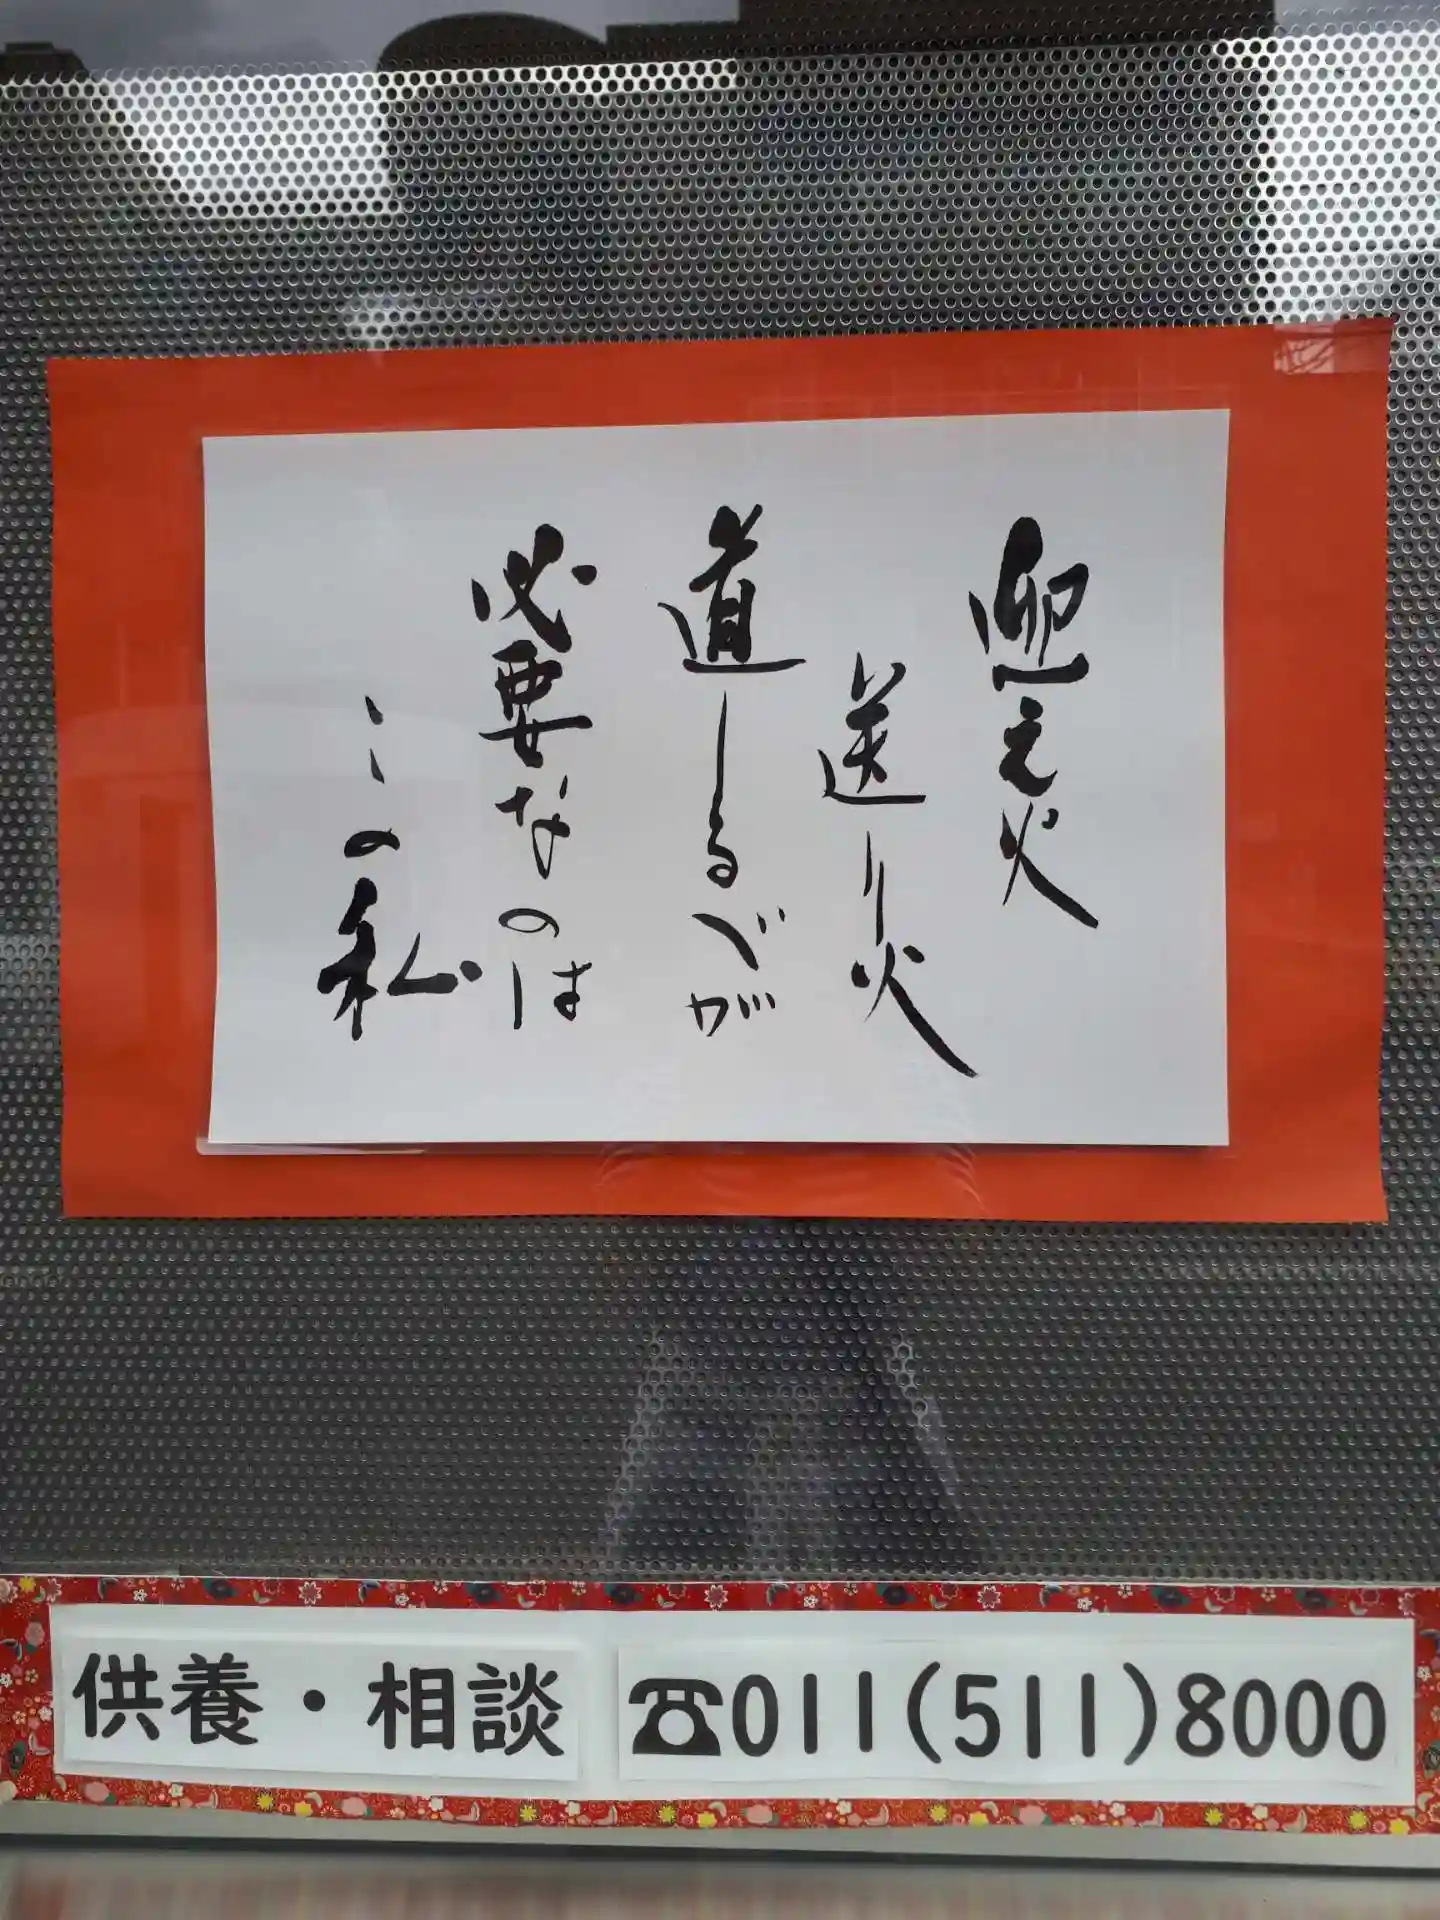 迎え火
送り火
道しるべが
必要なのは
この私
供養・相談
☎011(511)8000